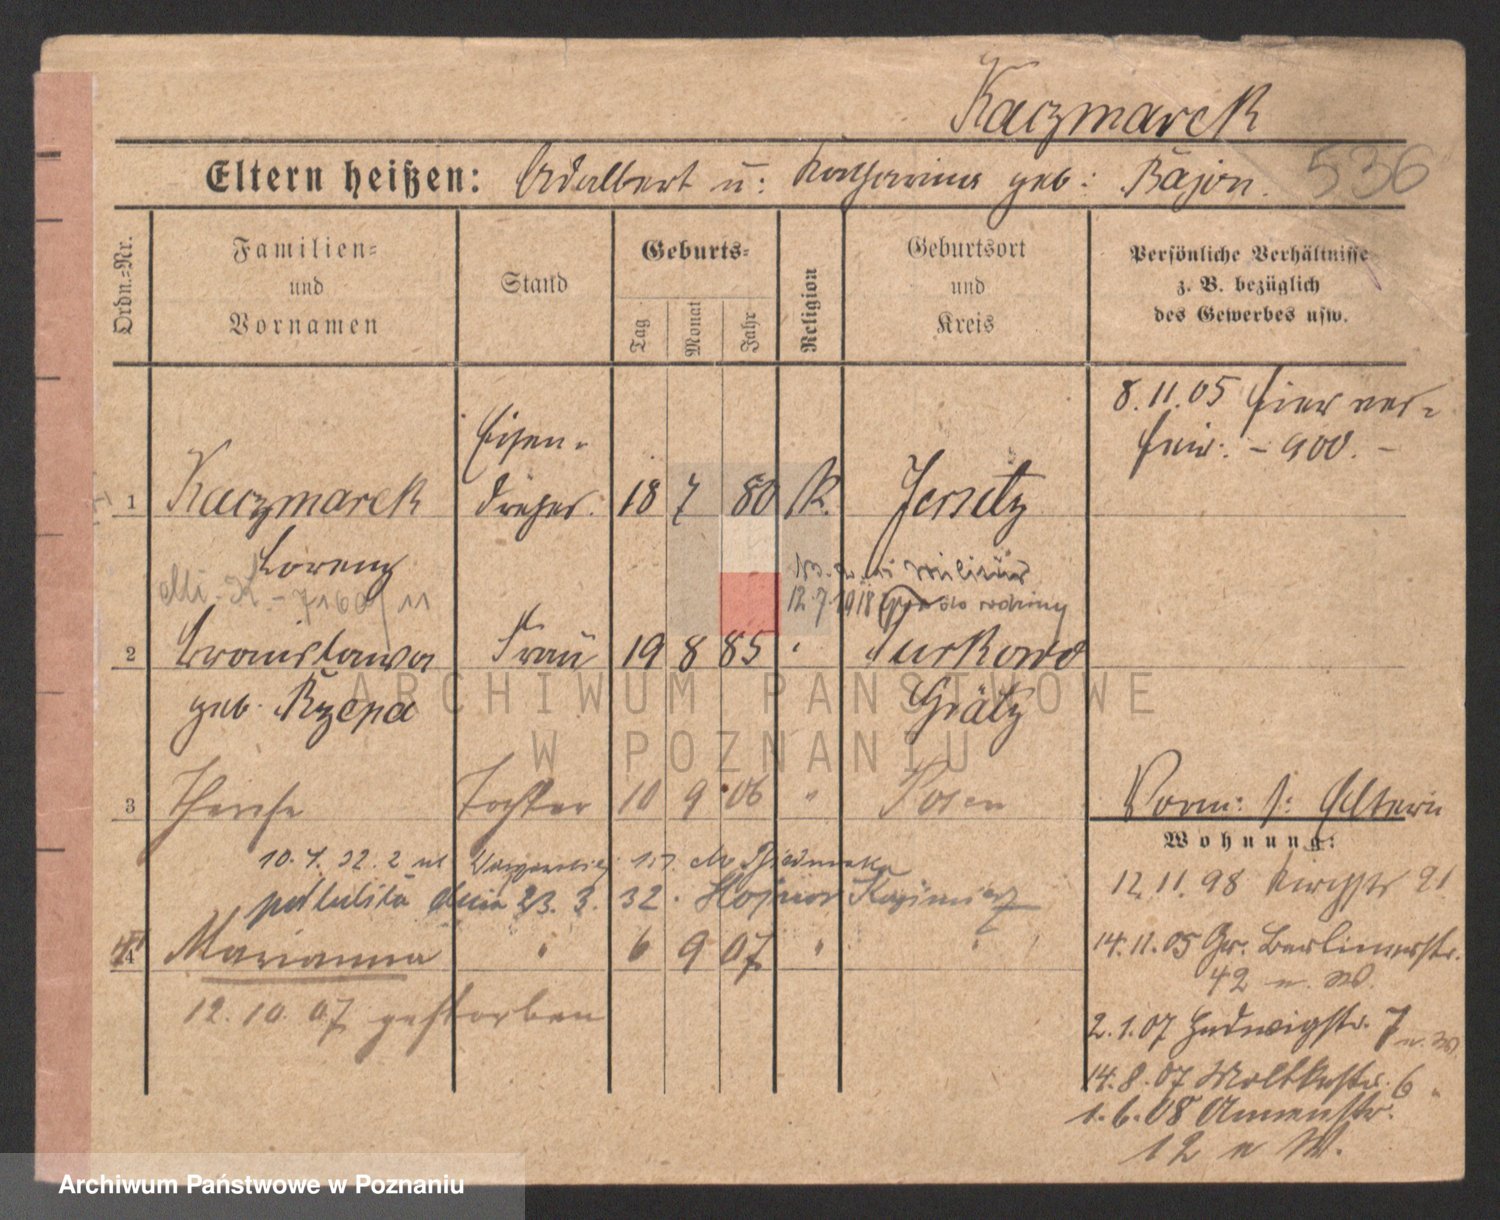 Kaczmarek
536
Eltern heißen: Adalbert u: Katharina geb: Bajon.
Ordn.=Nr.
Familien=
und
Vornamen
Stand
Geburts=
Tag
Monat
Jahr
Religion
Geburtsort
und
Kreis
Persönliche Verhältnisse
z. B. bezüglich
des Gewerbes usw.
8.11.05 hier ver=
heir: - 900. -
1 Kaczmarek Eisen=
dreher. 18 7 80 K. Jersitz
Lorenz
12.7.1918 do rodziny
2 Bronislawa Frau 19 8 85 " Turkowo
geb. Rzepa Grätz
3 Therese Tochter 10 9 06 " Posen
10.7.32. 2
23. 3. 32.
4 Marianna " 6 9 07 " "
12.10.07 gestorben
Vorm: s: Eltern
Wohnung:
12.11.98 Kirchstr 21
14.11.05 Gr. Berlinerstr.
42 n. W.
2.1.07 Hedwigstr. 7 n. W.
14.8.07 Moltkestr. 6 "
1.6.08 Annenstr.
12 n W.
ARCHIWUM PAŃSTWOWE
W POZNANIU
Archiwum Państwowe w Poznaniu